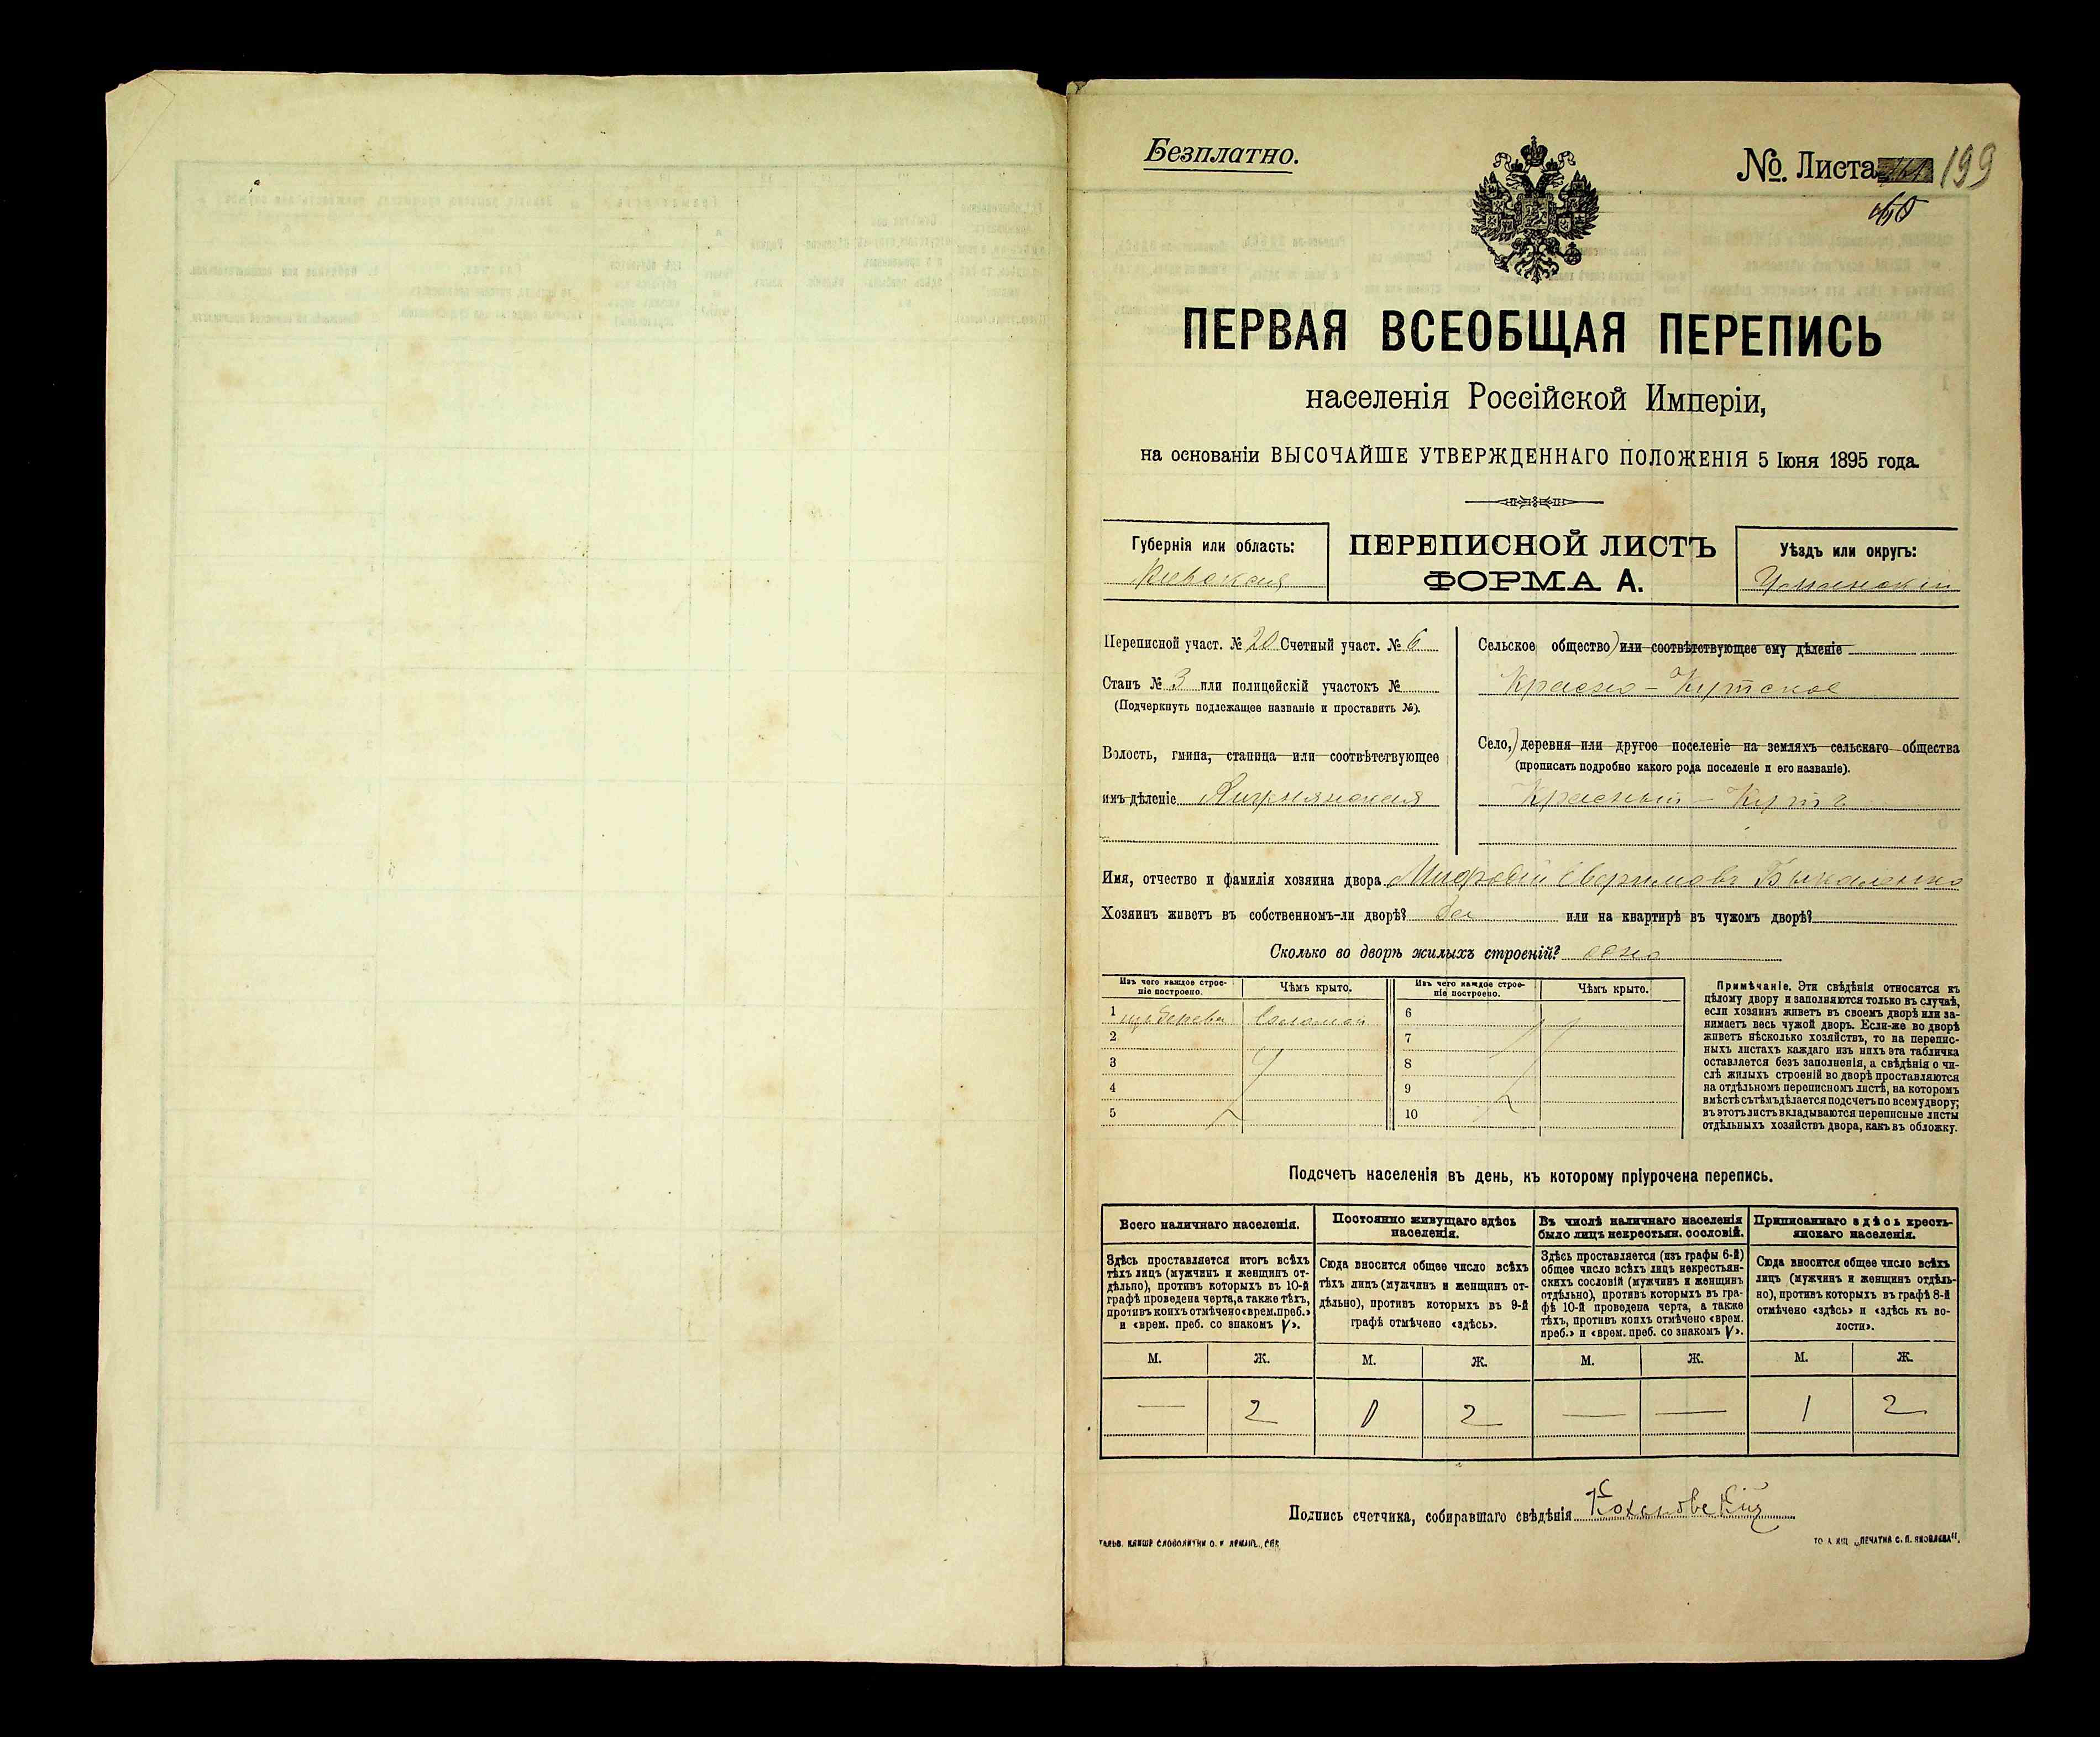 Безплатно.
№. Листа 199
ПЕРВАЯ ВСЕОБЩАЯ ПЕРЕПИСЬ
населенія Россійской Имперіи,
на основаніи ВЫСОЧАЙШЕ УТВЕРЖДЕННАГО ПОЛОЖЕНІЯ 5 Іюня 1895 года.
Губернія или область:
Кіевская
ПЕРЕПИСНОЙ ЛИСТЪ
ФОРМА А.
Уѣздъ или округъ:
Уманскій
Переписной участ. № 20 Счетный участ. № 6
Станъ № 3 или полицейскій участокъ №
(Подчеркнуть подлежащее названіе и проставить №).
Волость, гмина, станица или соотвѣтствующее
имъ дѣленіе
Сельское общество) или соотвѣтствующее ему дѣленіе
Красно-Кутское
Село,) деревня или другое поселеніе на земляхъ сельскаго общества
(прописать подробно какого рода поселеніе и его названіе).
Красный-Кутъ
Имя, отчество и фамилія хозяина двора
Хозяинъ живетъ въ собственномъ-ли дворѣ? да или на квартирѣ въ чужомъ дворѣ?
Сколько во дворѣ жилыхъ строеній? одно
Изъ чего каждое строе-
ніе построено.
Чѣмъ крыто.
Изъ чего каждое строе-
ніе построено.
Чѣмъ крыто.
1 изъ дерева соломой 6
2 7
3 8
4 9
5 10
Примѣчаніе. Эти свѣдѣнія относятся къ
цѣлому двору и заполняются только въ случаѣ,
если хозяинъ живетъ въ своемъ дворѣ или за-
нимаетъ весь чужой дворъ. Если-же во дворѣ
живетъ нѣсколько хозяйствъ, то на перепис-
ныхъ листахъ каждаго изъ нихъ эта табличка
оставляется безъ заполненія, а свѣдѣнія о чи-
слѣ жилыхъ строеній во дворѣ проставляются
на отдѣльномъ переписномъ листѣ, на которомъ
вмѣстѣ съ тѣмъ дѣлается подсчетъ по всему двору;
въ этотъ листъ вкладываются переписные листы
отдѣльныхъ хозяйствъ двора, какъ въ обложку.
Подсчетъ населенія въ день, къ которому пріурочена перепись.
Всего наличнаго населенія.
Здѣсь проставляется итогъ всѣхъ
тѣхъ лицъ (мужчинъ и женщинъ от-
дѣльно), противъ которыхъ въ 10-й
графѣ проведена черта, а также тѣхъ,
противъ коихъ отмѣчено «врем. преб.»
и «врем. преб. со знакомъ V».
Постоянно живущаго здѣсь
населенія.
Сюда вносится общее число всѣхъ
тѣхъ лицъ (мужчинъ и женщинъ от-
дѣльно), противъ которыхъ въ 9-й
графѣ отмѣчено «здѣсь».
Въ числѣ наличнаго населенія
было лицъ некрестьян. сословій.
Здѣсь проставляется (изъ графы 6-й)
общее число всѣхъ лицъ некрестьян-
скихъ сословій (мужчинъ и женщинъ
отдѣльно), противъ которыхъ въ гра-
фѣ 10-й проведена черта, а также
тѣхъ, противъ коихъ отмѣчено «врем.
преб.» и «врем. преб. со знакомъ V».
Приписаннаго здѣсь кресть-
янскаго населенія.
Сюда вносится общее число всѣхъ
лицъ (мужчинъ и женщинъ отдѣль-
но), противъ которыхъ въ графѣ 8-й
отмѣчено «здѣсь» и «здѣсь къ во-
лости».
М. Ж. М. Ж. М. Ж. М. Ж.
— 2 1 2 — — 1 2
Подпись счетчика, собиравшаго свѣдѣнія